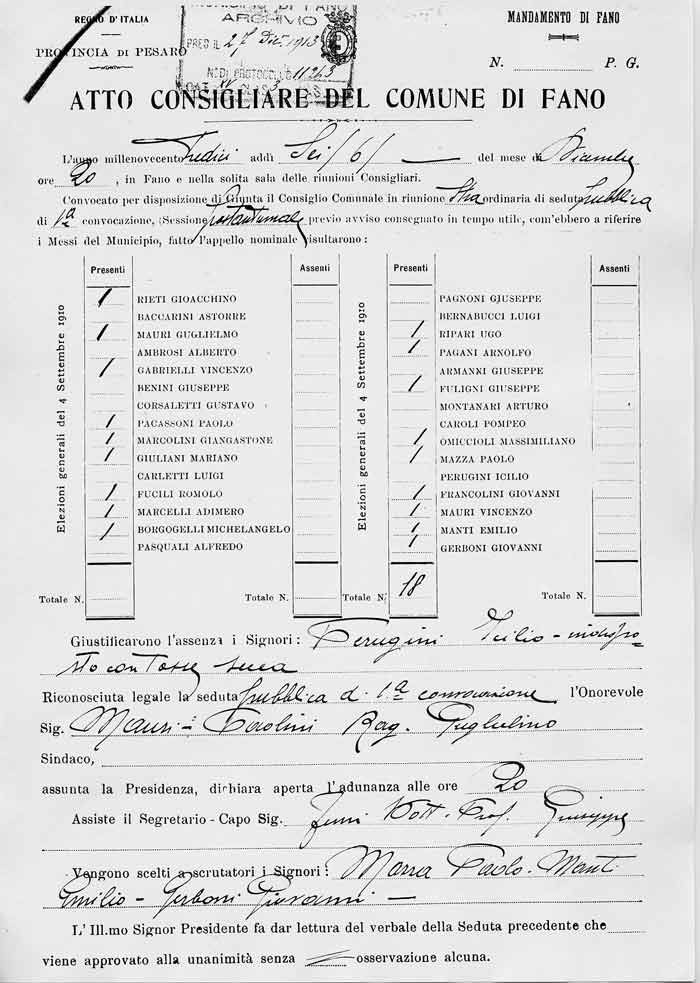 REGNO D'ITALIA
PROVINCIA DI PESARO
MUNICIPIO DI FANO
ARCHIVIO
PRES. IL 27 Dic. 1913
N. DI PROTOCOLLO 11263
MANDAMENTO DI FANO
N. P. G.
ATTO CONSIGLIARE DEL COMUNE DI FANO
L'anno millenovecento tredici addì Sei /6/ — del mese di Dicembre
ore 20, in Fano e nella solita sala delle riunioni Consigliari.
Convocato per disposizione di Giunta il Consiglio Comunale in riunione straordinaria di seduta pubblica
di 1ª convocazione, (Sessione postautunnale) previo avviso consegnato in tempo utile, com'ebbero a riferire
i Messi del Municipio, fatto l'appello nominale risultarono:
Presenti Assenti Presenti Assenti
Elezioni generali del 4 Settembre 1910
/ RIETI GIOACCHINO
BACCARINI ASTORRE
/ MAURI GUGLIELMO
AMBROSI ALBERTO
/ GABRIELLI VINCENZO
BENINI GIUSEPPE
CORSALETTI GUSTAVO
/ PACASSONI PAOLO
/ MARCOLINI GIANGASTONE
/ GIULIANI MARIANO
CARLETTI LUIGI
/ FUCILI ROMOLO
/ MARCELLI ADIMERO
/ BORGOGELLI MICHELANGELO
PASQUALI ALFREDO
Totale N. Totale N.
Elezioni generali del 4 Settembre 1910
PAGNONI GIUSEPPE
BERNABUCCI LUIGI
/ RIPARI UGO
/ PAGANI ARNOLFO
ARMANNI GIUSEPPE
/ FULIGNI GIUSEPPE
MONTANARI ARTURO
CAROLI POMPEO
/ OMICCIOLI MASSIMILIANO
/ MAZZA PAOLO
PERUGINI ICILIO
/ FRANCOLINI GIOVANNI
/ MAURI VINCENZO
/ MANTI EMILIO
/ GERBONI GIOVANNI
Totale N. 18 Totale N.
Giustificarono l'assenza i Signori: Perugini Icilio - indispo-
sto con tosse secca
Riconosciuta legale la seduta pubblica di 1ª convocazione l'Onorevole
Sig. Mauri - Paolini Rag. Guglielmo
Sindaco,
assunta la Presidenza, dichiara aperta l'adunanza alle ore 20
Assiste il Segretario-Capo Sig. Dott. Prof. Giuseppe
Vengono scelti a scrutatori i Signori: Mazza Paolo - Manti
Emilio - Gerboni Giovanni —
L'Ill.mo Signor Presidente fa dar lettura del verbale della Seduta precedente che
viene approvato alla unanimità senza = osservazione alcuna.